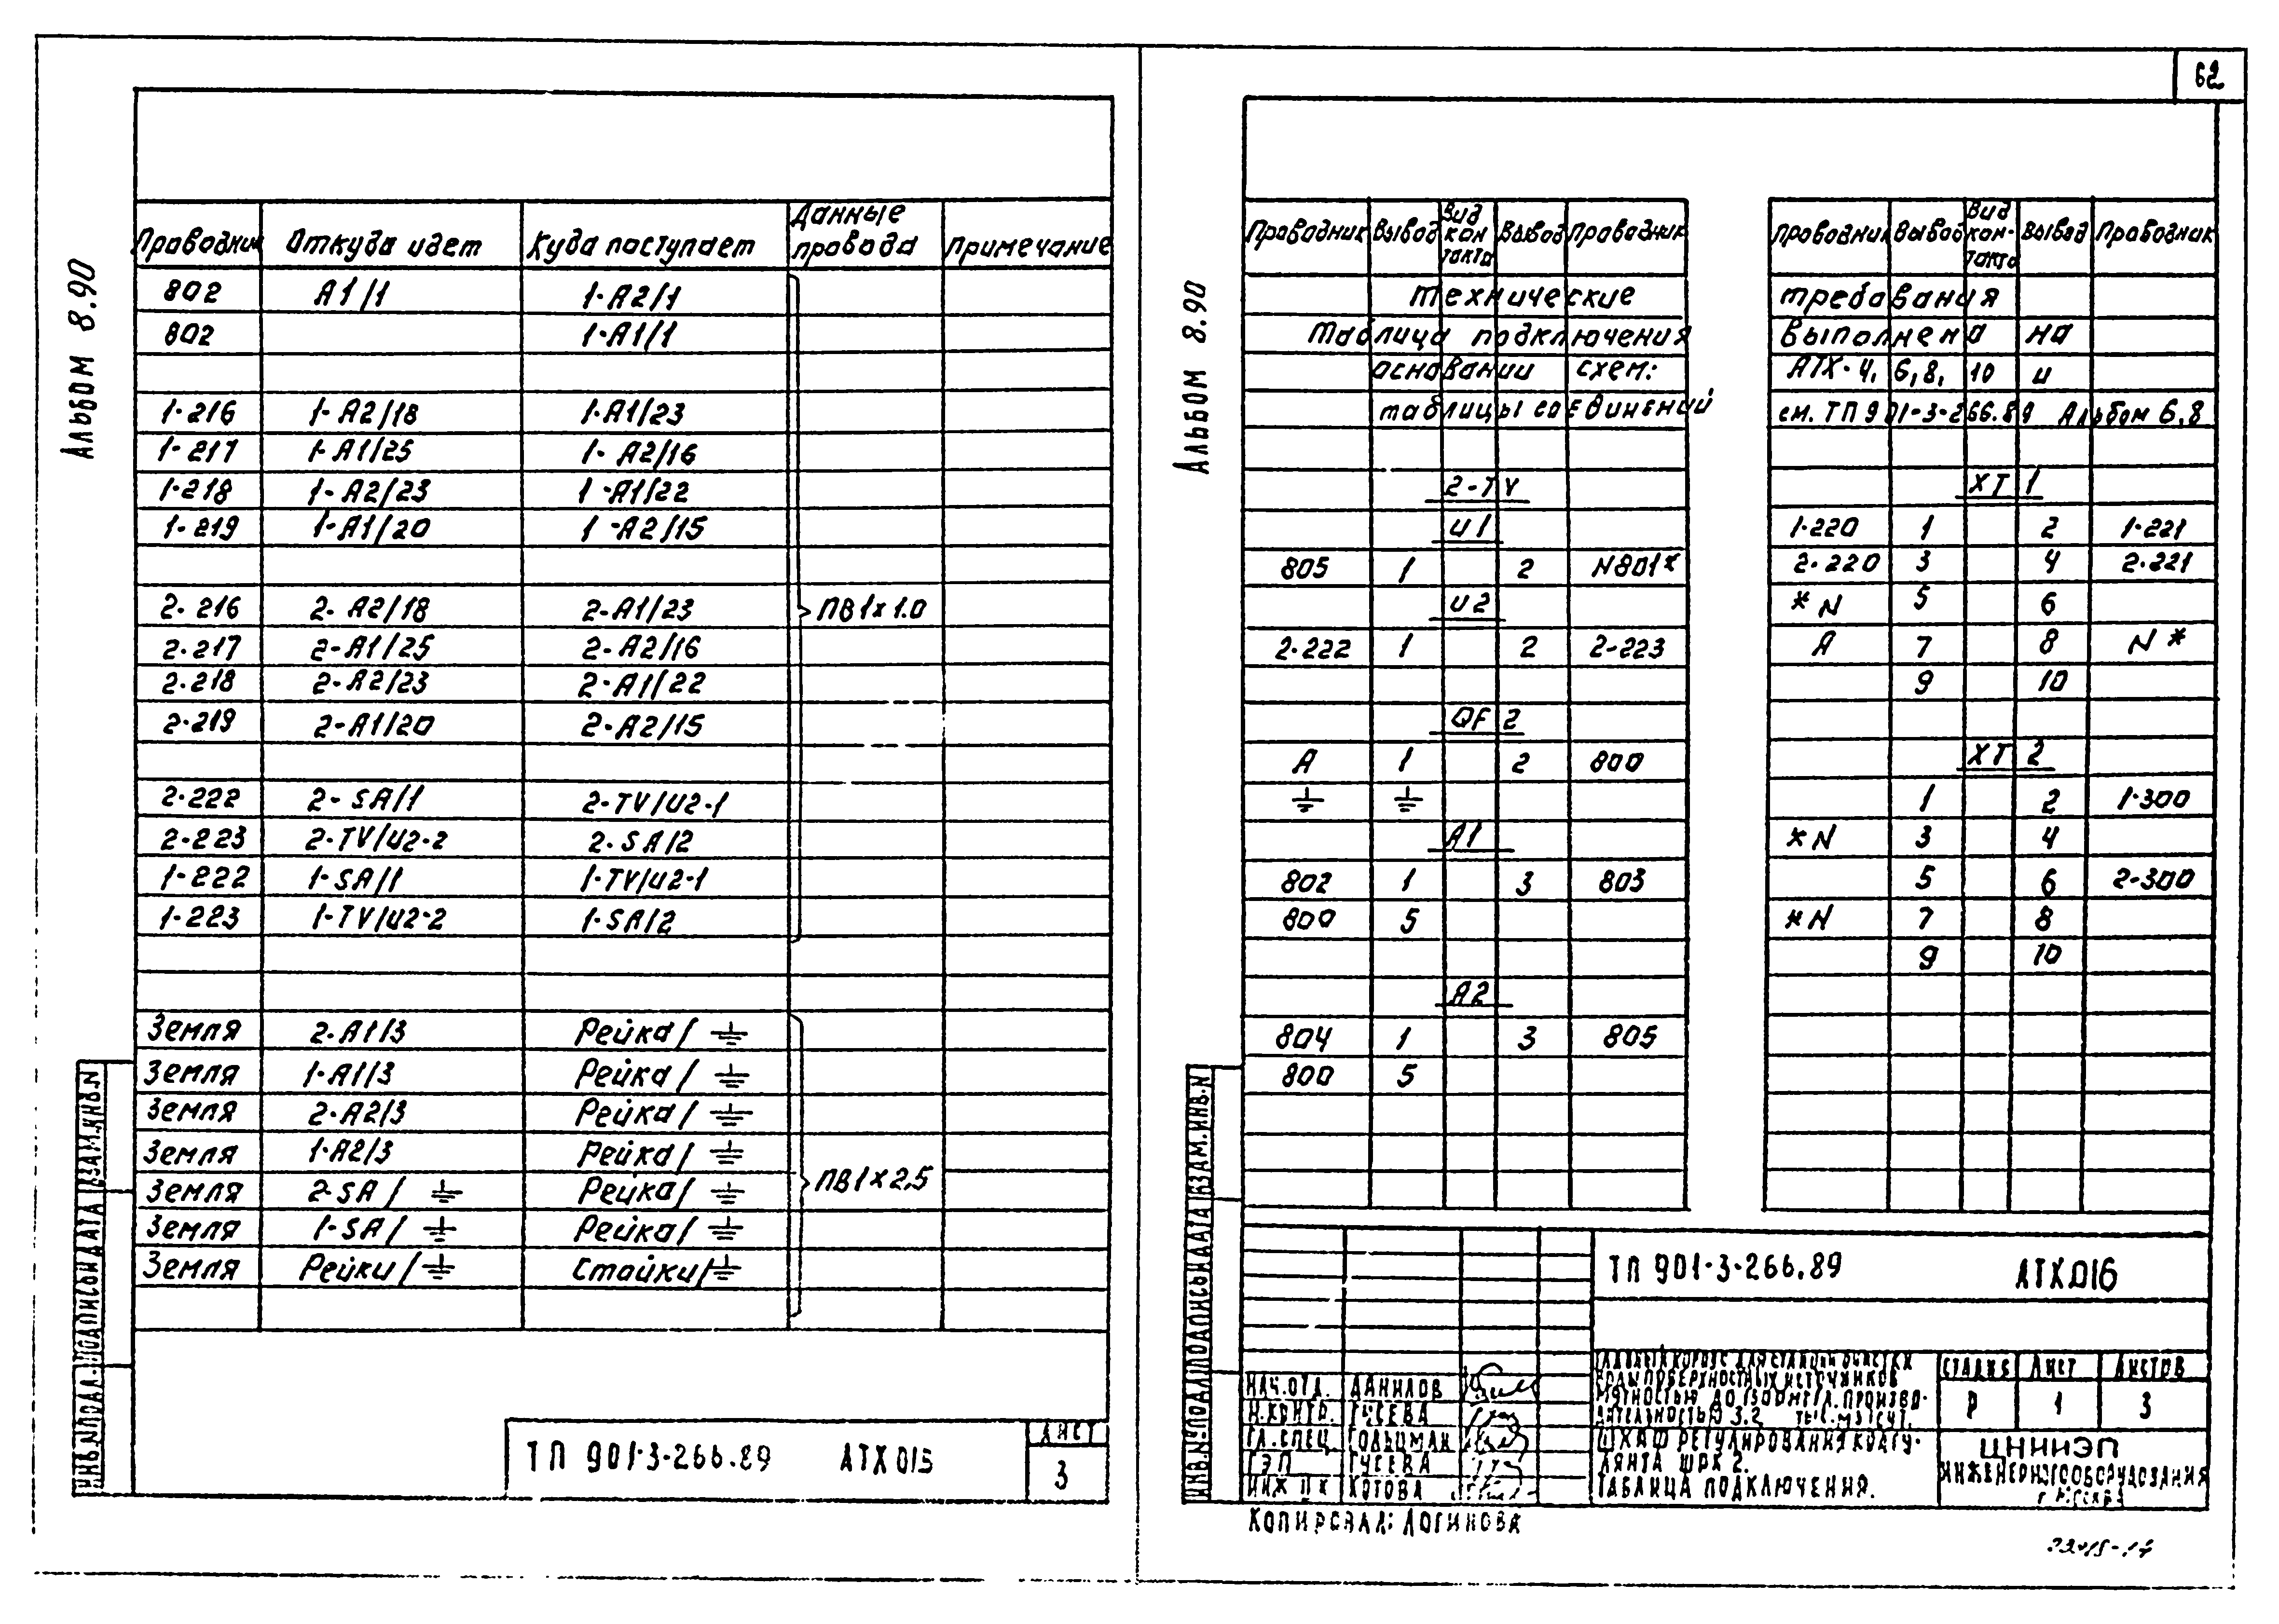 62
Альбом 8.90
Проводник Откуда идет Куда поступает Данные провода Примечание
802 А1/1 1-А2/1
802 1-А1/1
1-216 1-А2/18 1-А1/23
1-217 1-А1/25 1-А2/16
1-218 1-А2/23 1-А1/22
1-219 1-А1/20 1-А2/15
2-216 2-А2/18 2-А1/23 ПВ1х1.0
2-217 2-А1/25 2-А2/16
2-218 2-А2/23 2-А1/22
2-219 2-А1/20 2-А2/15
2-222 2-SA/1 2-TV/U2-1
2-223 2-TV/U2-2 2-SA/2
1-222 1-SA/1 1-TV/U2-1
1-223 1-TV/U2-2 1-SA/2
Земля 2-А1/3 Рейка/⏚
Земля 1-А1/3 Рейка/⏚
Земля 2-А2/3 Рейка/⏚
Земля 1-А2/3 Рейка/⏚
Земля 2-SA/⏚ Рейка/⏚ ПВ1х2,5
Земля 1-SA/⏚ Рейка/⏚
Земля Рейки/⏚ Стойки/⏚
ИНВ.№ПОДЛ. ПОДПИСЬ И ДАТА ВЗАМ.ИНВ.N
ТП 901-3-266.89 АТХ 015
ЛИСТ
3
Альбом 8.90
Проводник Вывод Вид контакта Вывод Проводник
Технические
Таблица подключения
основании схем:
таблицы соединений
2-TV
U1
805 1 2 N801*
U2
2-222 1 2 2-223
QF 2
А 1 2 800
⏚ ⏚
А1
802 1 3 803
800 5
А2
804 1 3 805
800 5
Проводник Вывод Вид контакта Вывод Проводник
требования
выполнена на
АТХ-4, 6,8, 10 и
см. ТП 901-3-266.89 Альбом 6,8
ХТ 1
1-220 1 2 1-221
2-220 3 4 2-221
*N 5 6
А 7 8 N*
9 10
ХТ 2
1 2 1-300
*N 3 4
5 6 2-300
*N 7 8
9 10
ИНВ.№ПОДЛ ПОДПИСЬ И ДАТА ВЗАМ.ИНВ.N
ТП 901-3-266.89 АТХ.016
НАЧ.ОТД. ДАНИЛОВ
Н.КОНТР. ГУСЕВА
ГЛ.СПЕЦ. ГОЛЬЦМАН
ГЭП ГУСЕВА
ИНЖ II К КОТОВА
ГЛАВНЫЙ КОРПУС ДЛЯ СТАНЦИИ ОЧИСТКИ
ВОДЫ ПОВЕРХНОСТНЫХ ИСТОЧНИКОВ
МУТНОСТЬЮ ДО 1500МГ/Л. ПРОИЗВО-
ДИТЕЛЬНОСТЬЮ 3.2 ТЫС.М3/СУТ.
ШКАФ РЕГУЛИРОВАНИЯ КОАГУ-
ЛЯНТА ШРК 2.
ТАБЛИЦА ПОДКЛЮЧЕНИЯ.
СТАДИЯ ЛИСТ ЛИСТОВ
Р 1 3
ЦНИИЭП
ИНЖЕНЕРНОГО ОБОРУДОВАНИЯ
г. МОСКВА
КОПИРОВАЛ: ЛОГИНОВА